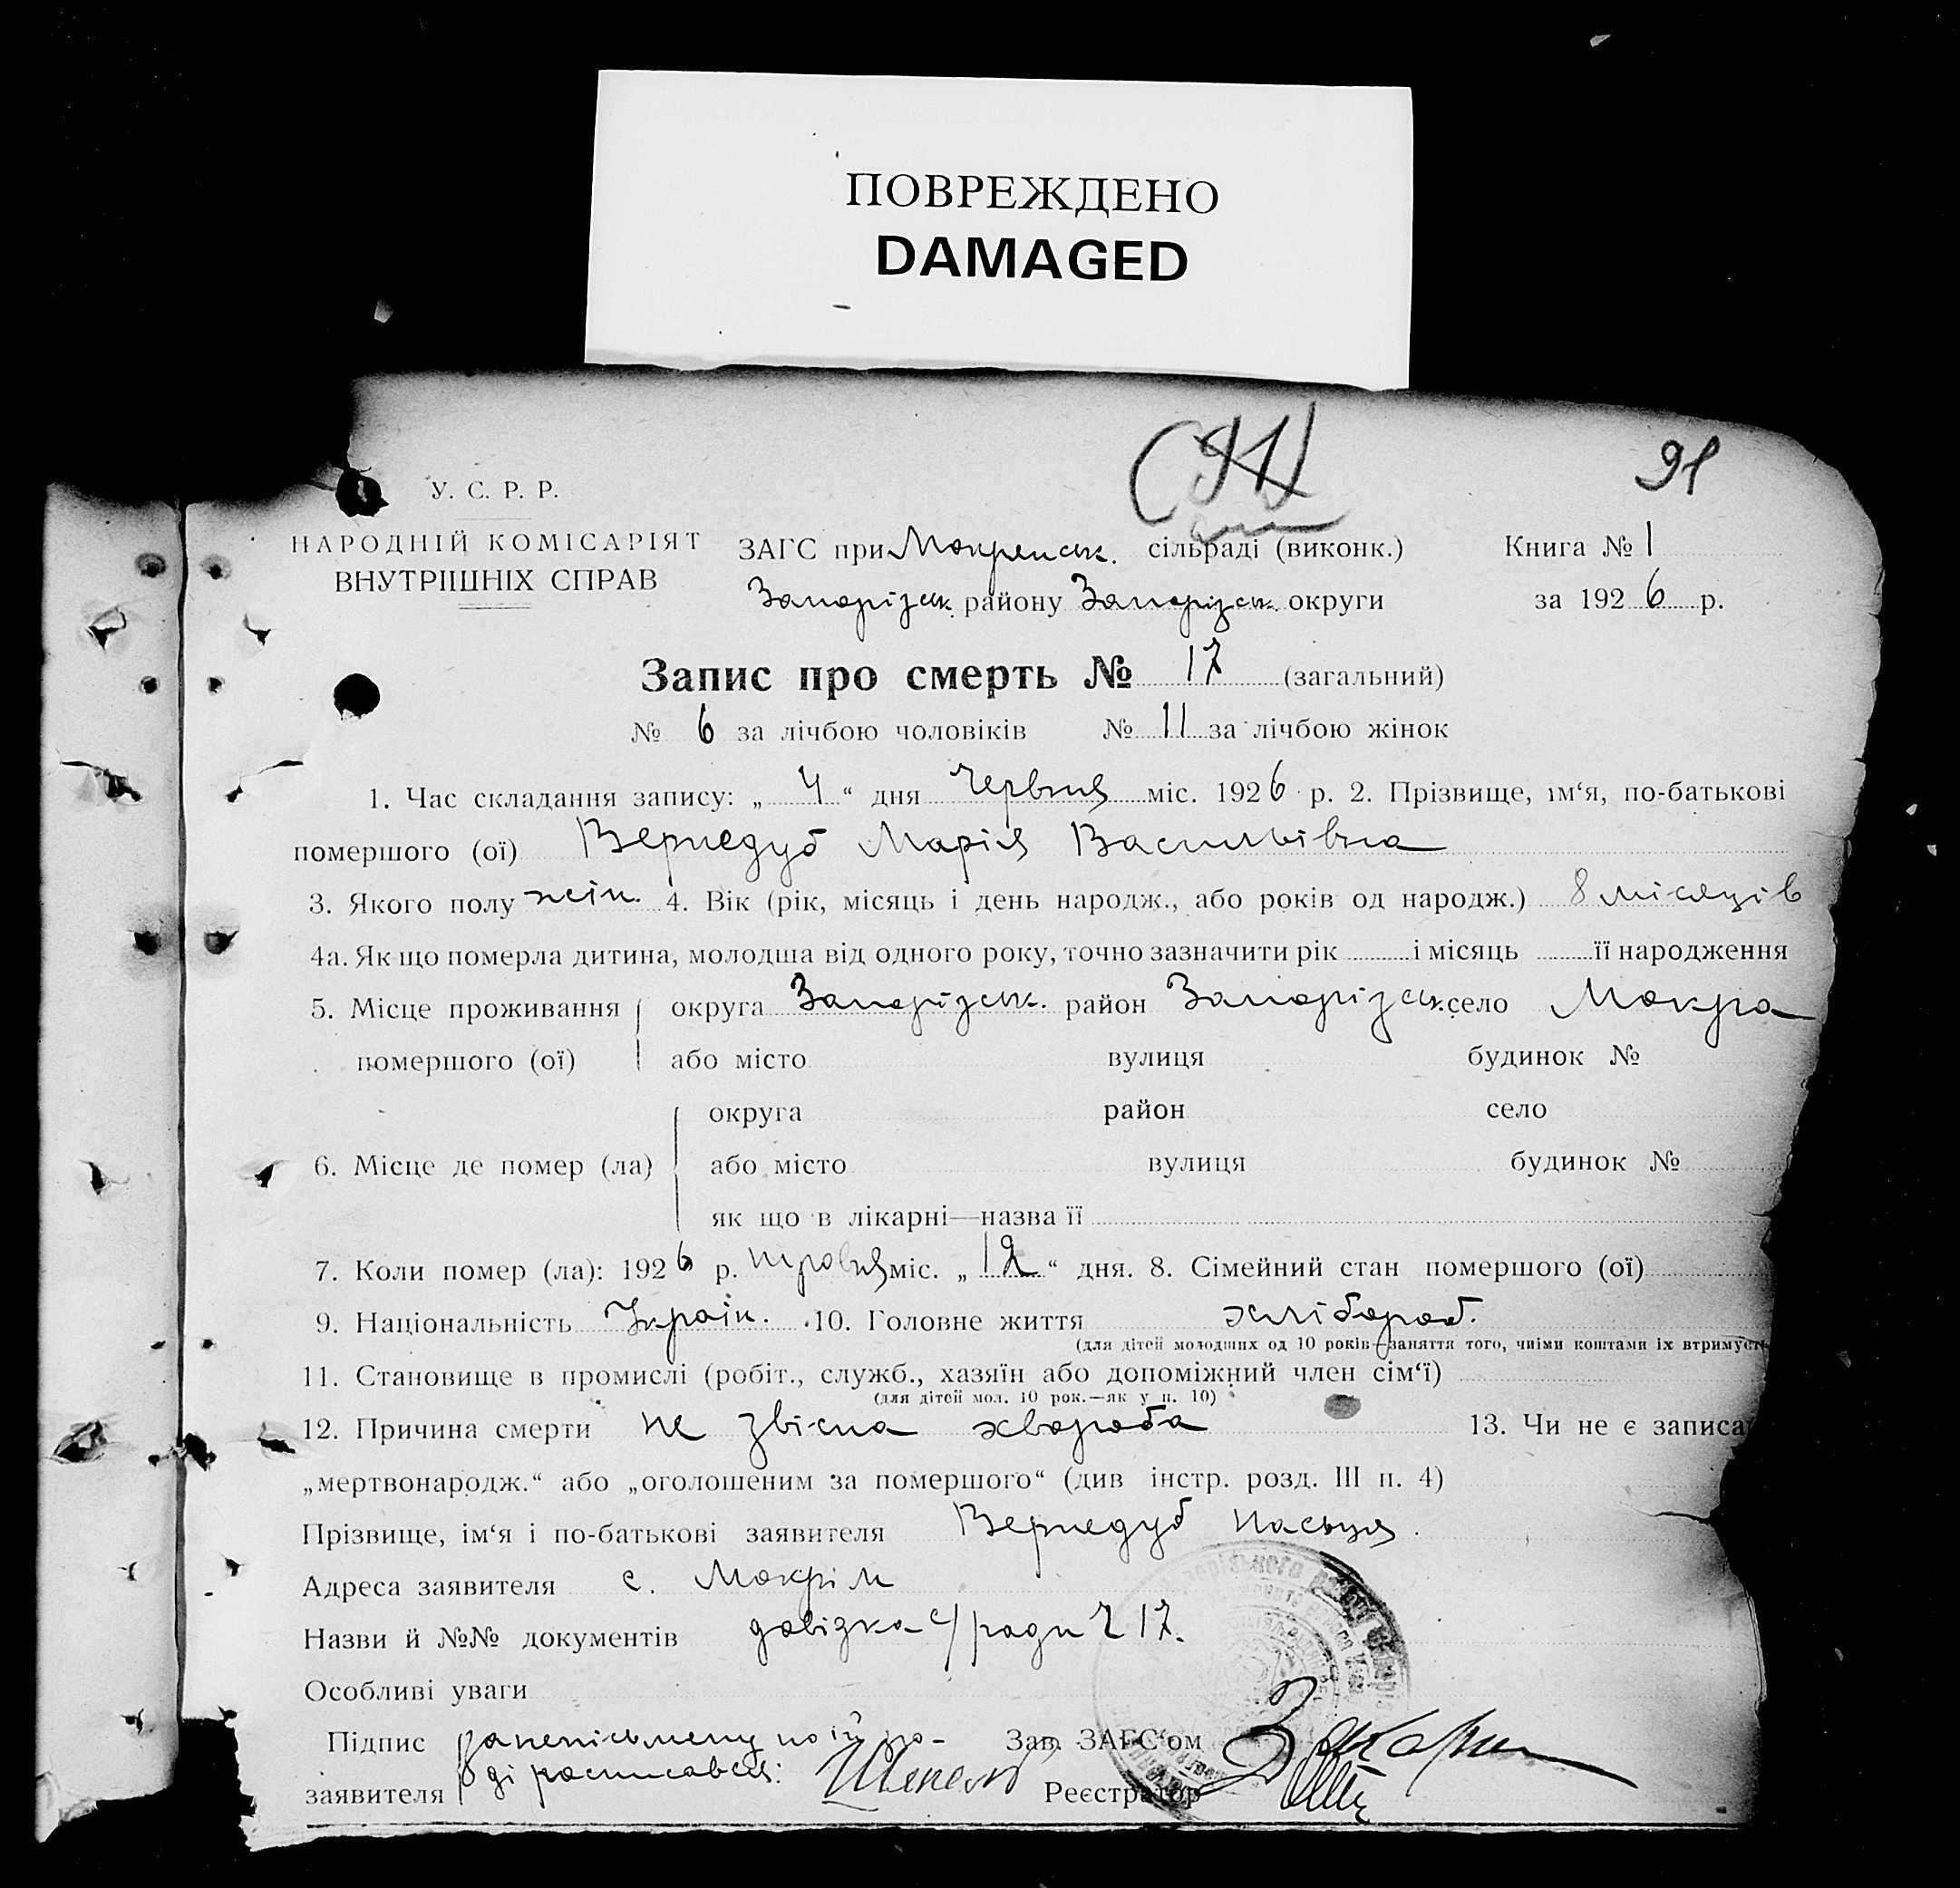 ПОВРЕЖДЕНО
DAMAGED
(91)
91
У. С. Р. Р.
НАРОДНІЙ КОМІСАРІЯТ
ВНУТРІШНІХ СПРАВ
ЗАГС при Мокрянськ. сільраді (виконк.)
Запорізськ. району Запорізськ. округи
Книга № 1
за 1926 р.
Запис про смерть № 17 (загальний)
№ 6 за лічбою чоловіків № 11 за лічбою жінок
1. Час складання запису: „ 4 “ дня Червня міс. 1926 р. 2. Прізвище, ім‘я, по-батькові
помершого (ої) Вернедуб Марія Васильівна
3. Якого полу жін. 4. Вік (рік, місяць і день народж., або років од народж.) 8 місяців
4а. Як що померла дитина, молодша від одного року, точно зазначити рік і місяць її народження
5. Місце проживання округа Запорізськ. район Запорізськ. село Мокра
помершого (ої) або місто вулиця будинок №
округа район село
6. Місце де помер (ла) або місто вулиця будинок №
як що в лікарні—назва її
7. Коли помер (ла): 1926 р. травня міс. „ 12 “ дня. 8. Сімейний стан помершого (ої)
9. Національність Україн. 10. Головне життя хлібороб.
(для дітей молодших од 10 років—заняття того, чиїми коштами їх втримуєть
11. Становище в промислі (робіт., служб., хазяїн або допоміжний член сім‘ї)
(для дітей мол. 10 рок.—як у п. 10)
12. Причина смерти не звісна хвороба 13. Чи не є записа
„мертвонародж.“ або „оголошеним за помершого“ (див інстр. розд. III п. 4)
Прізвище, ім‘я і по-батькові заявителя Вернедуб
Адреса заявителя с. Мокрім
Назви й №№ документів довізка с/ради Ч 17.
Особливі уваги
Підпис
заявителя росписався:
Зав. ЗАГС‘ом
Реєстратор